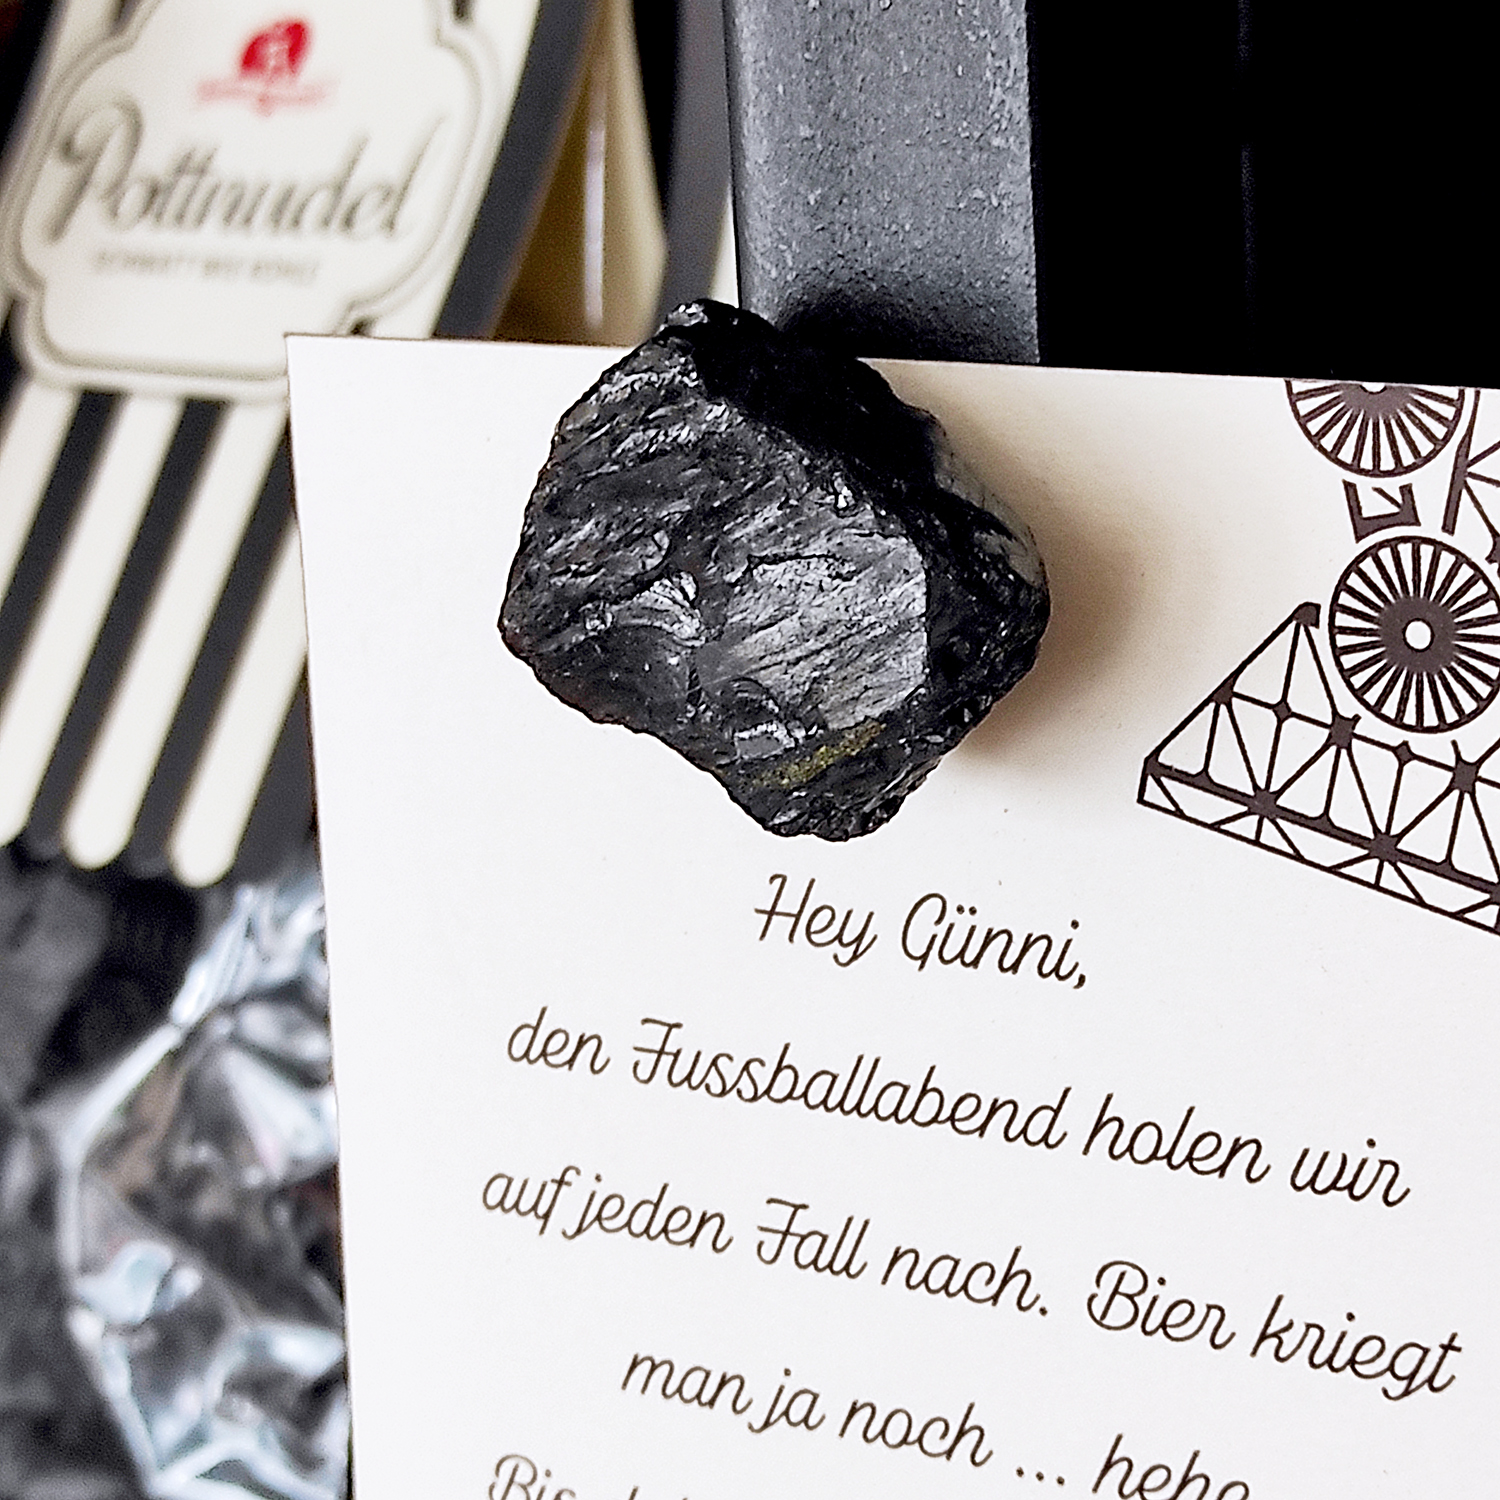 Pottnudel
SCHWARZ WIE KOHLE
Hey Günni,
den Fussballabend holen wir
auf jeden Fall nach. Bier kriegt
man ja noch ... hehe